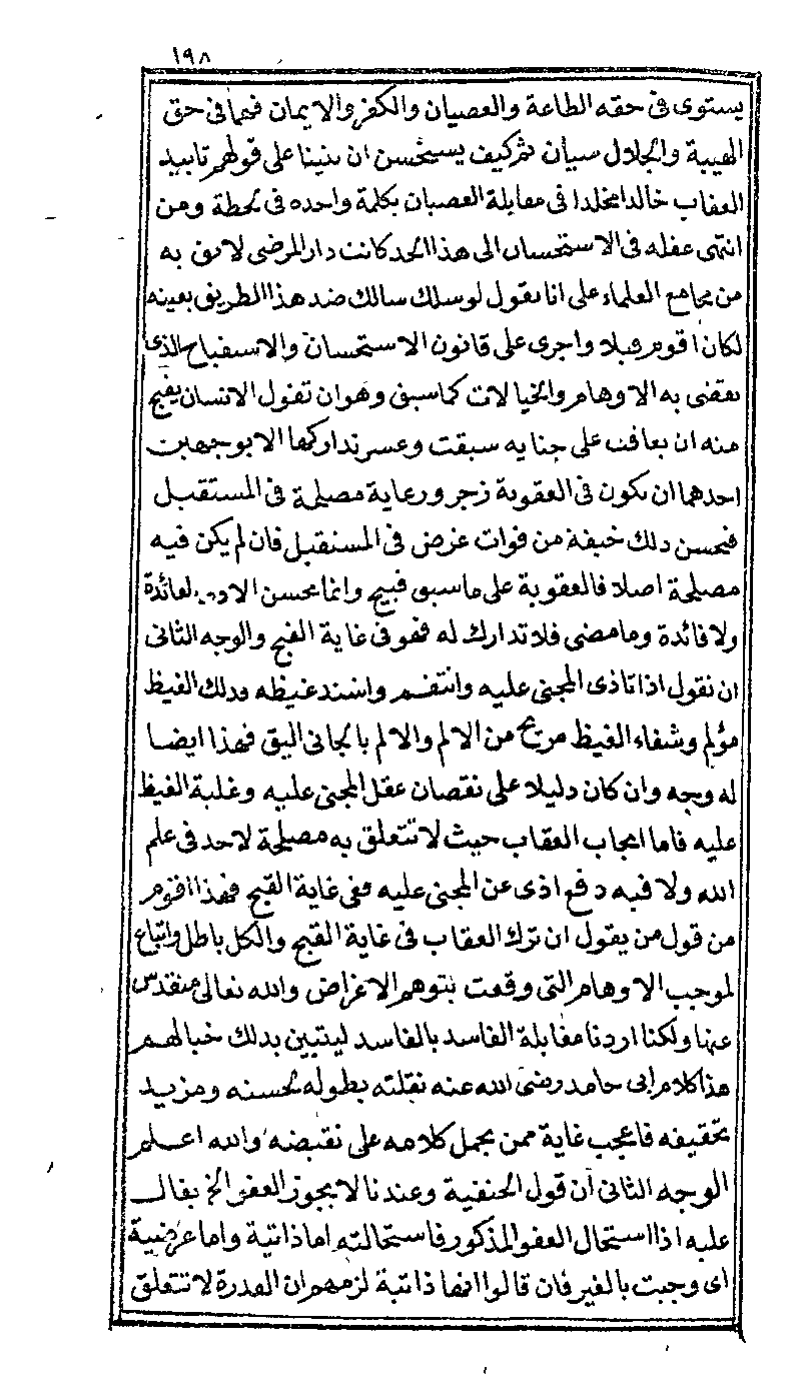 ١٩٨
يستوى فى حقه الطاعة والعصيان والكفر والايمان فهما فى حق
الهيبة والجلال سيان ثم كيف يستحسن ان بنينا على قولهم تابيد
العقاب خالدا مخلدا فى مقابلة العصيان بكلمة واحده فى لحظة ومن
انتهى عقله فى الاستحسان الى هذا الحد كانت دار المرضى لايق به
من مجامع العلماء على انا نقول لو سلك سالك ضد هذا الطريق بعينه
لكان اقوم قبلا واجرى على قانون الاستحسان والاستقباح الذى
تقضى به الاوهام والخيالات كما سبق وهو ان تقول الانسان يقبح
منه ان يعاقب على جنايه سبقت وعسر تداركها الا بوجهين
احدهما ان يكون فى العقوبة زجر ورعاية مصلحة فى المستقبل
فيحسن ذلك خيفة من فوات غرض فى المستقبل فان لم يكن فيه
مصلحة اصلا فالعقوبة على ما سبق قبيح وانما يحسن لعائدة
ولا فائدة وما مضى فلا تدارك له فهو فى غاية القبح والوجه الثانى
ان نقول اذا تاذى المجنى عليه وانتقم واشتد غيظه وذلك الغيظ
مؤلم وشفاء الغيظ مريح من الالم والالم بالجانى اليق فهذا ايضا
له وجه وان كان دليلا على نقصان عقل المجنى عليه وغلبة الغيظ
عليه فاما ايجاب العقاب حيث لا تتعلق به مصلحة لاحد فى علم
الله ولا فيه دفع اذى عن المجنى عليه ففى غاية القبح فهذا اقوم
من قول من يقول ان ترك العقاب فى غاية القبح والكل باطل واتباع
لموجب الاوهام التى وقعت بتوهم الاغراض والله تعالى متقدس
عنها ولكنا اردنا مقابلة الفاسد بالفاسد ليتبين بذلك خبالهم
هذا كلام ابى حامد رضى الله عنه نقلته بطوله لحسنه ومزيد
تحقيقه فاعجب غاية ممن يحمل كلامه على نقيضه والله اعلم
الوجه الثانى ان قول الحنفية وعندنا لا يجوز العفو الخ يقال
عليه اذا استحال العفو المذكور فاستحالته اما ذاتية واما عرضية
اى وجبت بالغير فان قالوا انها ذاتية لزمهم ان القدرة لا تتعلق